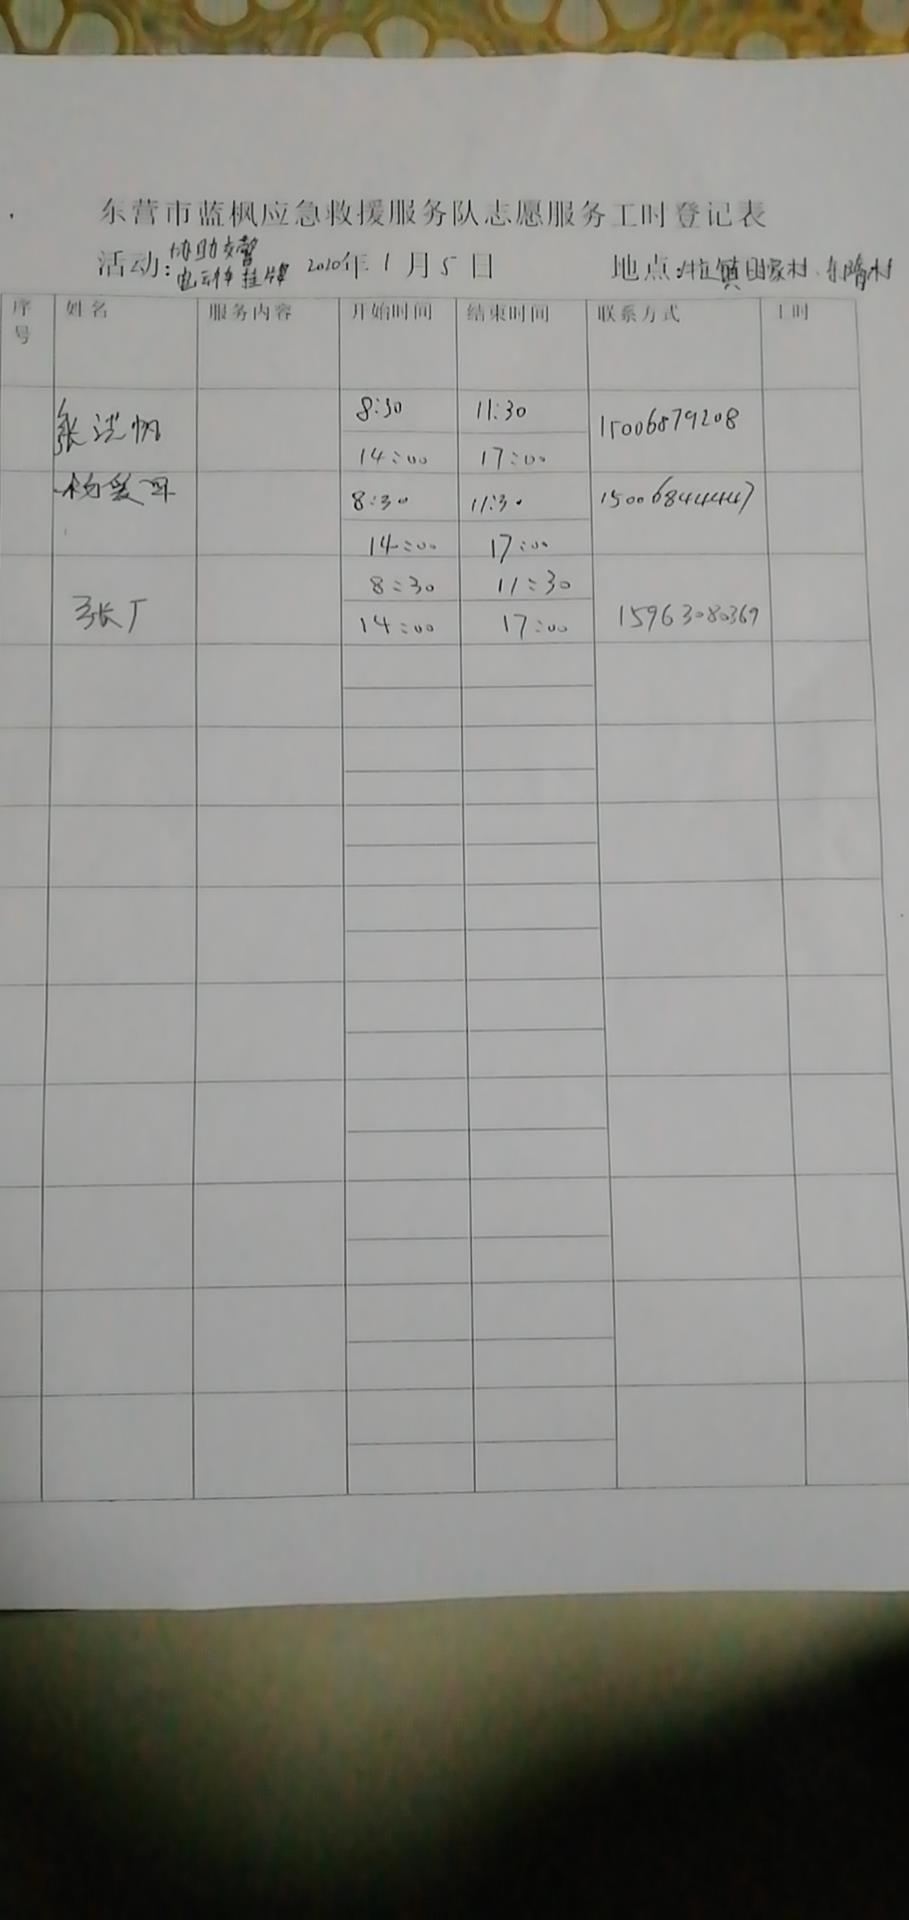 东营市蓝枫应急救援服务队志愿服务工时登记表
活动:协助交警 电动车挂牌 2020年1月5日 地点: 镇田家村、东隋村
序号 姓名 服务内容 开始时间 结束时间 联系方式 工时
张洪帆 8:30 11:30 15006879208
14:00 17:00
杨 8:30 11:30
14:00 17:00
张广 8:30 11:30 15963080369
14:00 17:00